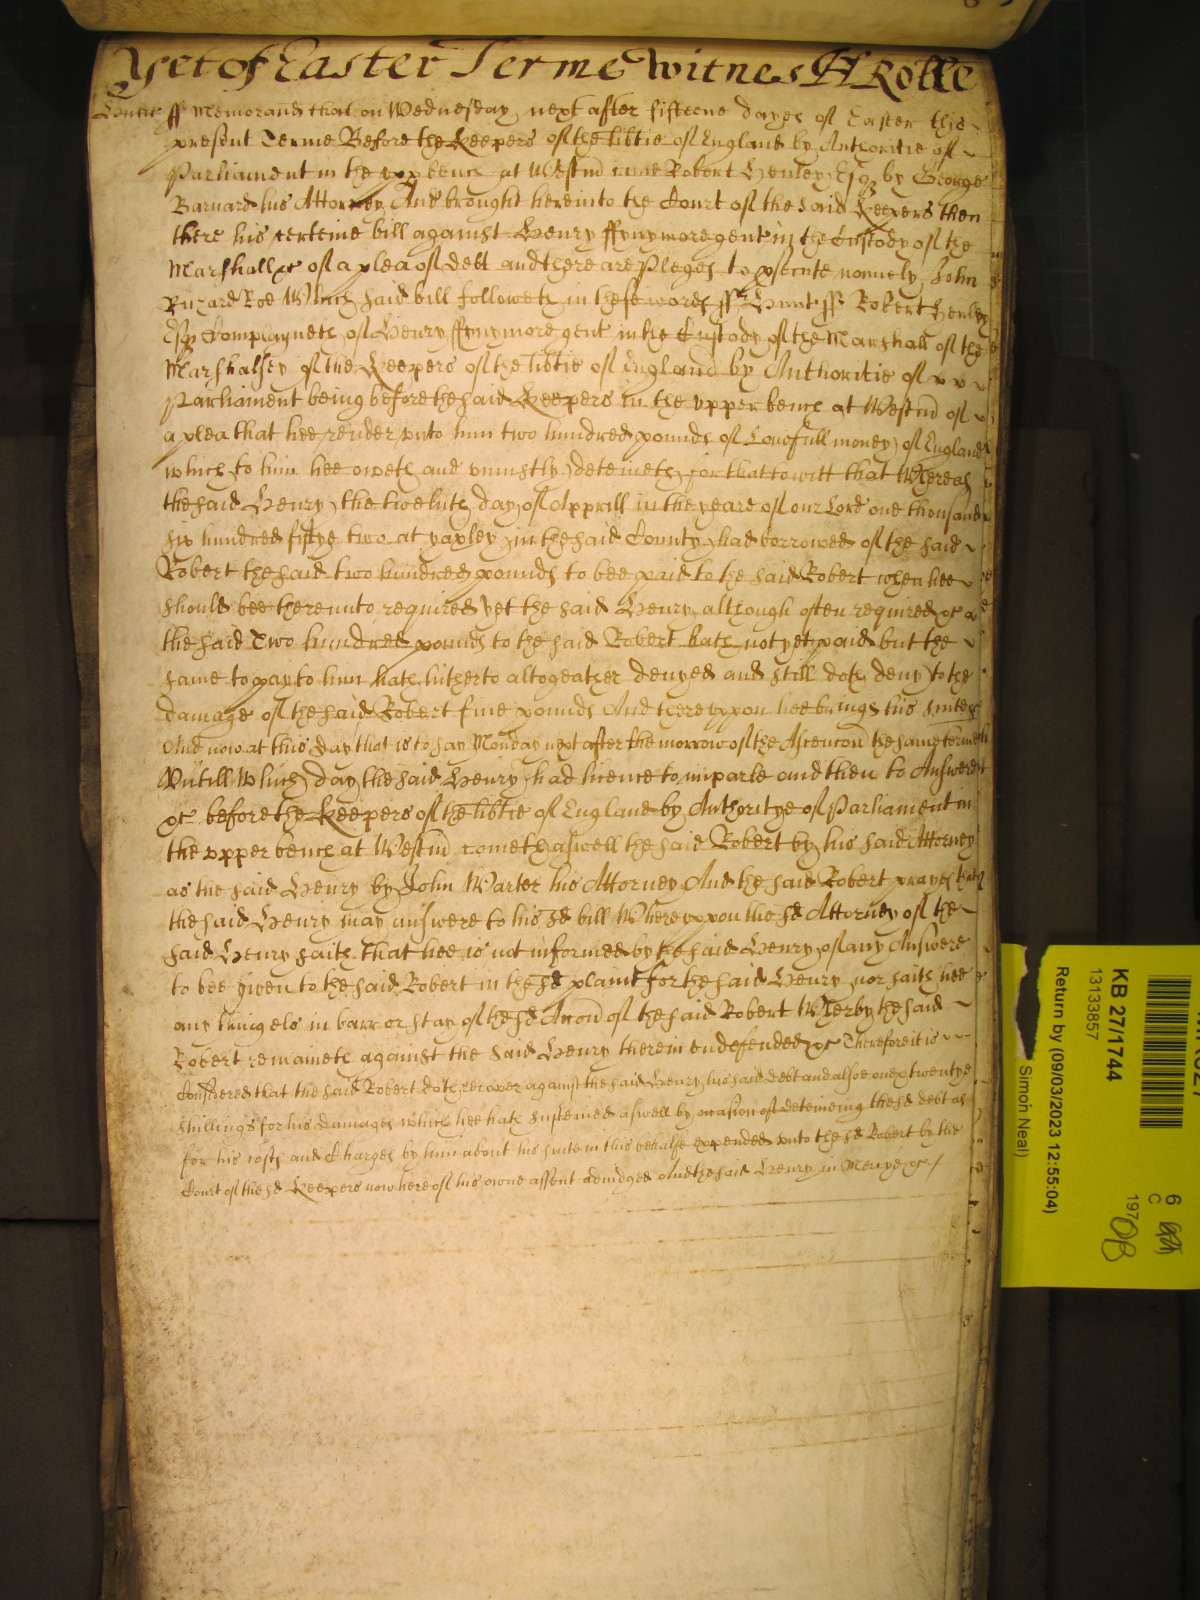 Yet of Easter Terme Witnes H Rolle
Hunt ff Memorand that on Wednesday next after fifteene dayes of Easter this
present Terme Before the Keepers of the libtie of England by Authoritie of
Parliament in the upp bench at Westm came Robert Henley Esq by George
Barnard his Attorney And brought here into the Court of the said Keepers then
there his certeine bill against Henry ffynymore gent in the Custody of the
Marshall &c of a plea of debt and there are Pleges to psecute namely John
Richard Roe Which said bill followeth in these words ff Hunt ff Robert Henley
Esq Complayneth of Henry ffynymore gent in the Custody of the Marshall of the
Marshalsey of the Keepers of the libtie of England by Authoritie of
Parliament being before the said Keepers in the upper bench at Westm of
a plea that hee render unto him two hundred pounds of Lawfull money of England
which to him hee oweth and uniustly deteineth for that towitt that Whereas
the said Henry the twelueth day of Apprill in the yeare of our Lord one thousand
six hundred fiftye two at yaxley in the said County had borrowed of the said
Robert the said two hundred pounds to bee paid to the said Robert when hee
should bee thereunto required yet the said Henry although often required &c
the said Two hundred pounds to the said Robert hath not yet paid but the
same to pay to him hath hitherto altogeather denyed and still doth deny to the
damage of the said Robert fiue pounds And thereuppon hee brings this suite &c
And now at this day that is to say Monday next after the morrow of the Ascencon the same terme
Untill Which day the said Henry had licence to imparle and then to Answere
&c before the Keepers of the libtie of England by Authoritye of Parliament in
the upper bench at Westm cometh aswell the said Robert by his said Attorney
as the said Henry by John Warter his Attorney And the said Robert prayes that
the said Henry may answere to his sd bill Whereuppon the sd Attorney of the
said Henry saith that hee is not informed by the said Henry of any Answere
to bee given to the said Robert in the sd plaint for the said Henry nor saith hee
any thing els in barr or stay of the sd Accon of the said Robert Wherby the said
Robert remaineth against the said Henry therein undefended &c Therefore it is
Considered that the said Robert doth recover against the said Henry his said debt and alsoe twentye
shillings for his damages which hee hath susteined aswell by occasion of deteineing the sd debt as
for his costs and Charges by him about his suite in this behalfe expended unto the sd Robert by the
Court of the sd Keepers now here of his owne assent adiudged And the said Henry in Mercye &c
KB 27/1744
13133857
Return by (09/03/2023 12:55:04)
Simon Neal)
6
C
197